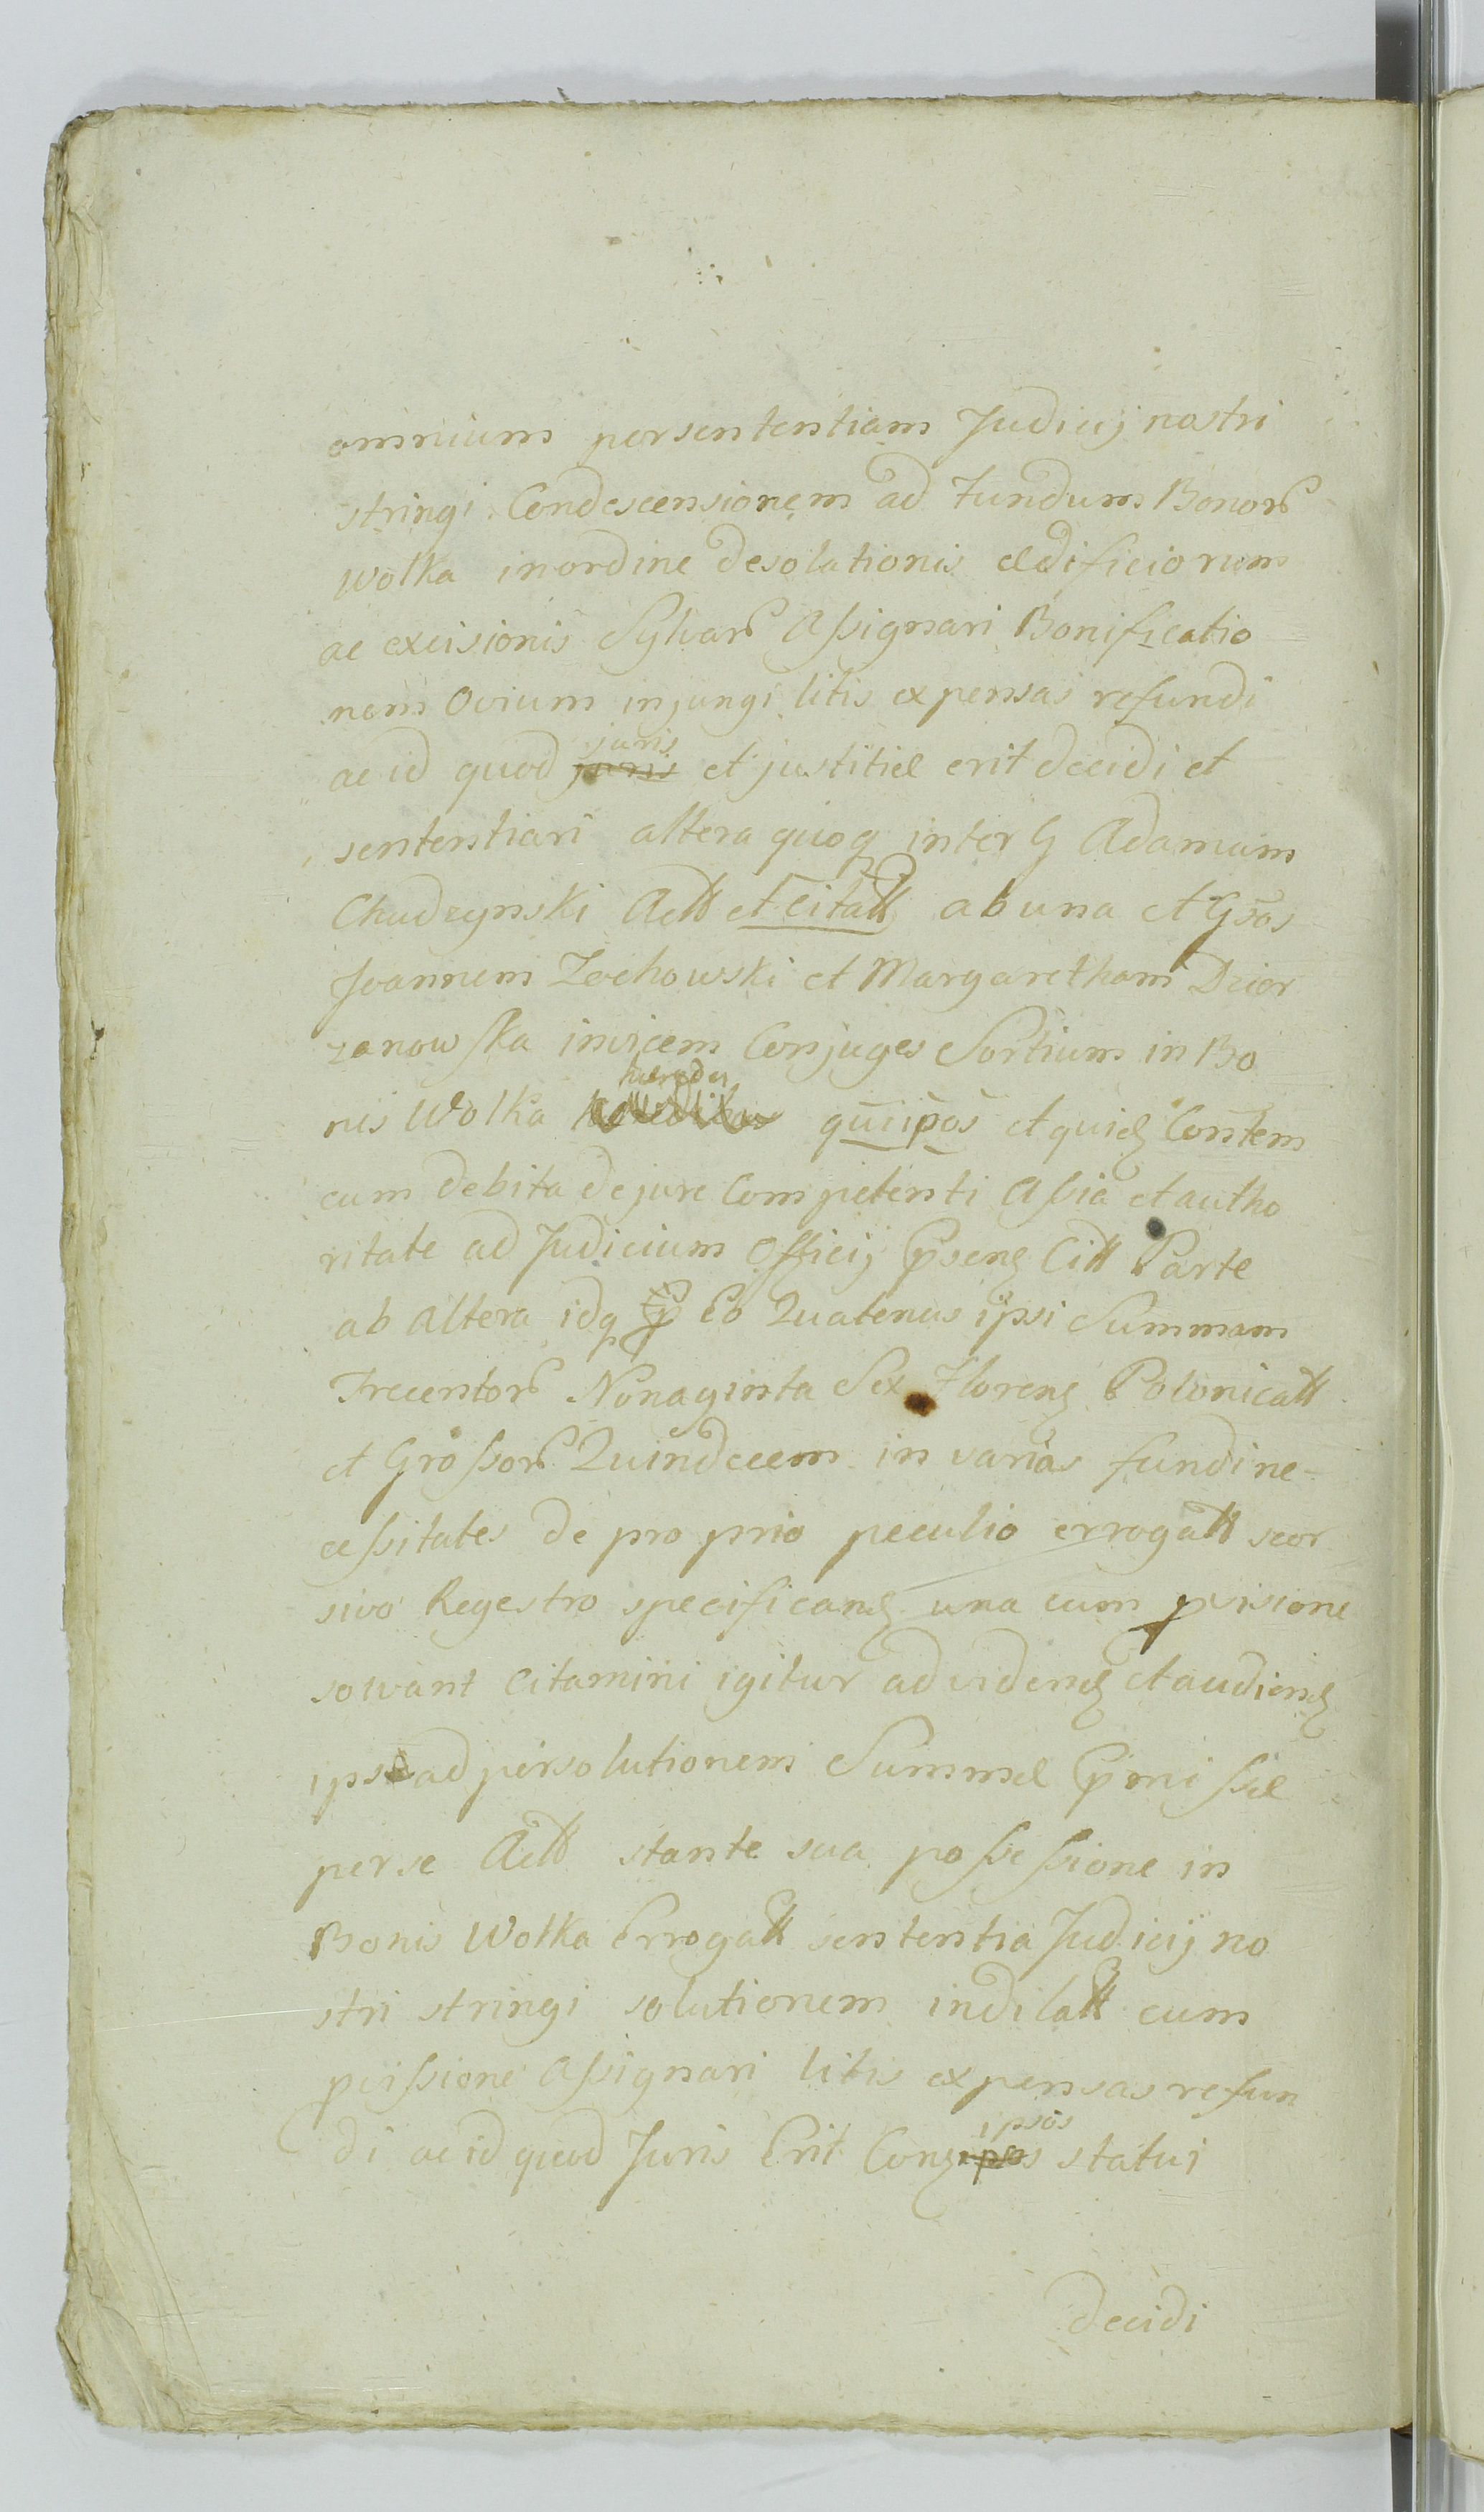 omnium per sententiam Judicij nostri
stringi Condescensionem ad Fundum Bonor
Wolka in ordine desolationis ædificiorum
ac excisionis Sylvar Assignari Bonificatio
nem Ovium injungi litis expensas refundi
juris
ac id quod juris et justitiæ erit decidi et
sententiari altera quoq inter G Adamum
Chudzynski Actt et Citatt ab una et Gsos
Joannem Zochowski et Margaretham Dzier
zanowska invicem Conjuges Sortium in Bo
hæredes
nis Wolka qmipos et quidz Contem
cum debita de jure Competenti Assia et autho
ritate ad Judicium Officij Psenz Citt Parte
ab altera idq Eo Quatenus ipsi Summam
Trecentor Nonaginta Sex Florenz Polonicatt
et Grossor Quindecem in varias fundi ne-
cessitates de proprio peculio errogatt seor
sivo Regestro specificanz una cum pvisione
solvant Citamini igitur ad videnz et audienz
ipse ad persolutionem Summæ Pmissæ
per se Actt stante sua possessione in
Bonis Wolka Errogatt sententia Judicij no
stri stringi solutionem indilatt cum
pvissione Assignari litis expensas refun
ipsos
di ac id quod Juris Erit Conz ipos statui
decidi